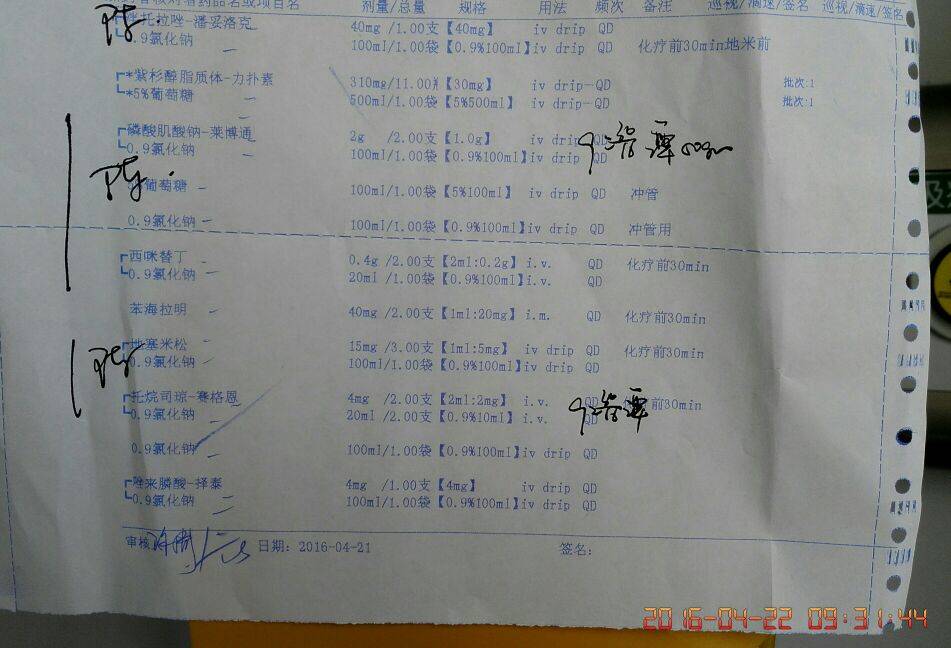 对着药品名或项目名 剂量/总量 规格 用法 频次 备注 巡视/滴速/签名 巡视/滴速/签名
托拉唑-潘妥洛克 40mg /1.00支【40mg】 iv drip QD
0.9氯化钠 100ml/1.00袋【0.9%100ml】iv drip QD 化疗前30min地米前
*紫杉醇脂质体-力扑素 310mg/11.00 【30mg】 iv drip-QD 批次:1
*5%葡萄糖 500ml/1.00袋【5%500ml】 iv drip-QD 批次:1
磷酸肌酸钠-莱博通 2g /2.00支【1.0g】 iv drip QD
0.9氯化钠 100ml/1.00袋【0.9%100ml】iv drip QD
葡萄糖 100ml/1.00袋【5%100ml】 iv drip QD 冲管
0.9氯化钠 100ml/1.00袋【0.9%100ml】iv drip QD 冲管用
西咪替丁 0.4g /2.00支【2ml:0.2g】i.v. QD 化疗前30min
0.9氯化钠 20ml /1.00袋【0.9%100ml】i.v. QD
苯海拉明 40mg /2.00支【1ml:20mg】i.m. QD 化疗前30min
地塞米松 15mg /3.00支【1ml:5mg】 iv drip QD 化疗前30min
0.9氯化钠 100ml/1.00袋【0.9%100ml】iv drip QD
托烷司琼-赛格恩 4mg /2.00支【2ml:2mg】i.v. QD 前30min
0.9氯化钠 20ml /2.00支【0.9%10ml】i.v. QD
0.9氯化钠 100ml/1.00袋【0.9%100ml】iv drip QD
唑来膦酸-择泰 4mg /1.00支【4mg】 iv drip QD
0.9氯化钠 100ml/1.00袋【0.9%100ml】iv drip QD
审核 日期: 2016-04-21 签名:
2016-04-22 09:31:44